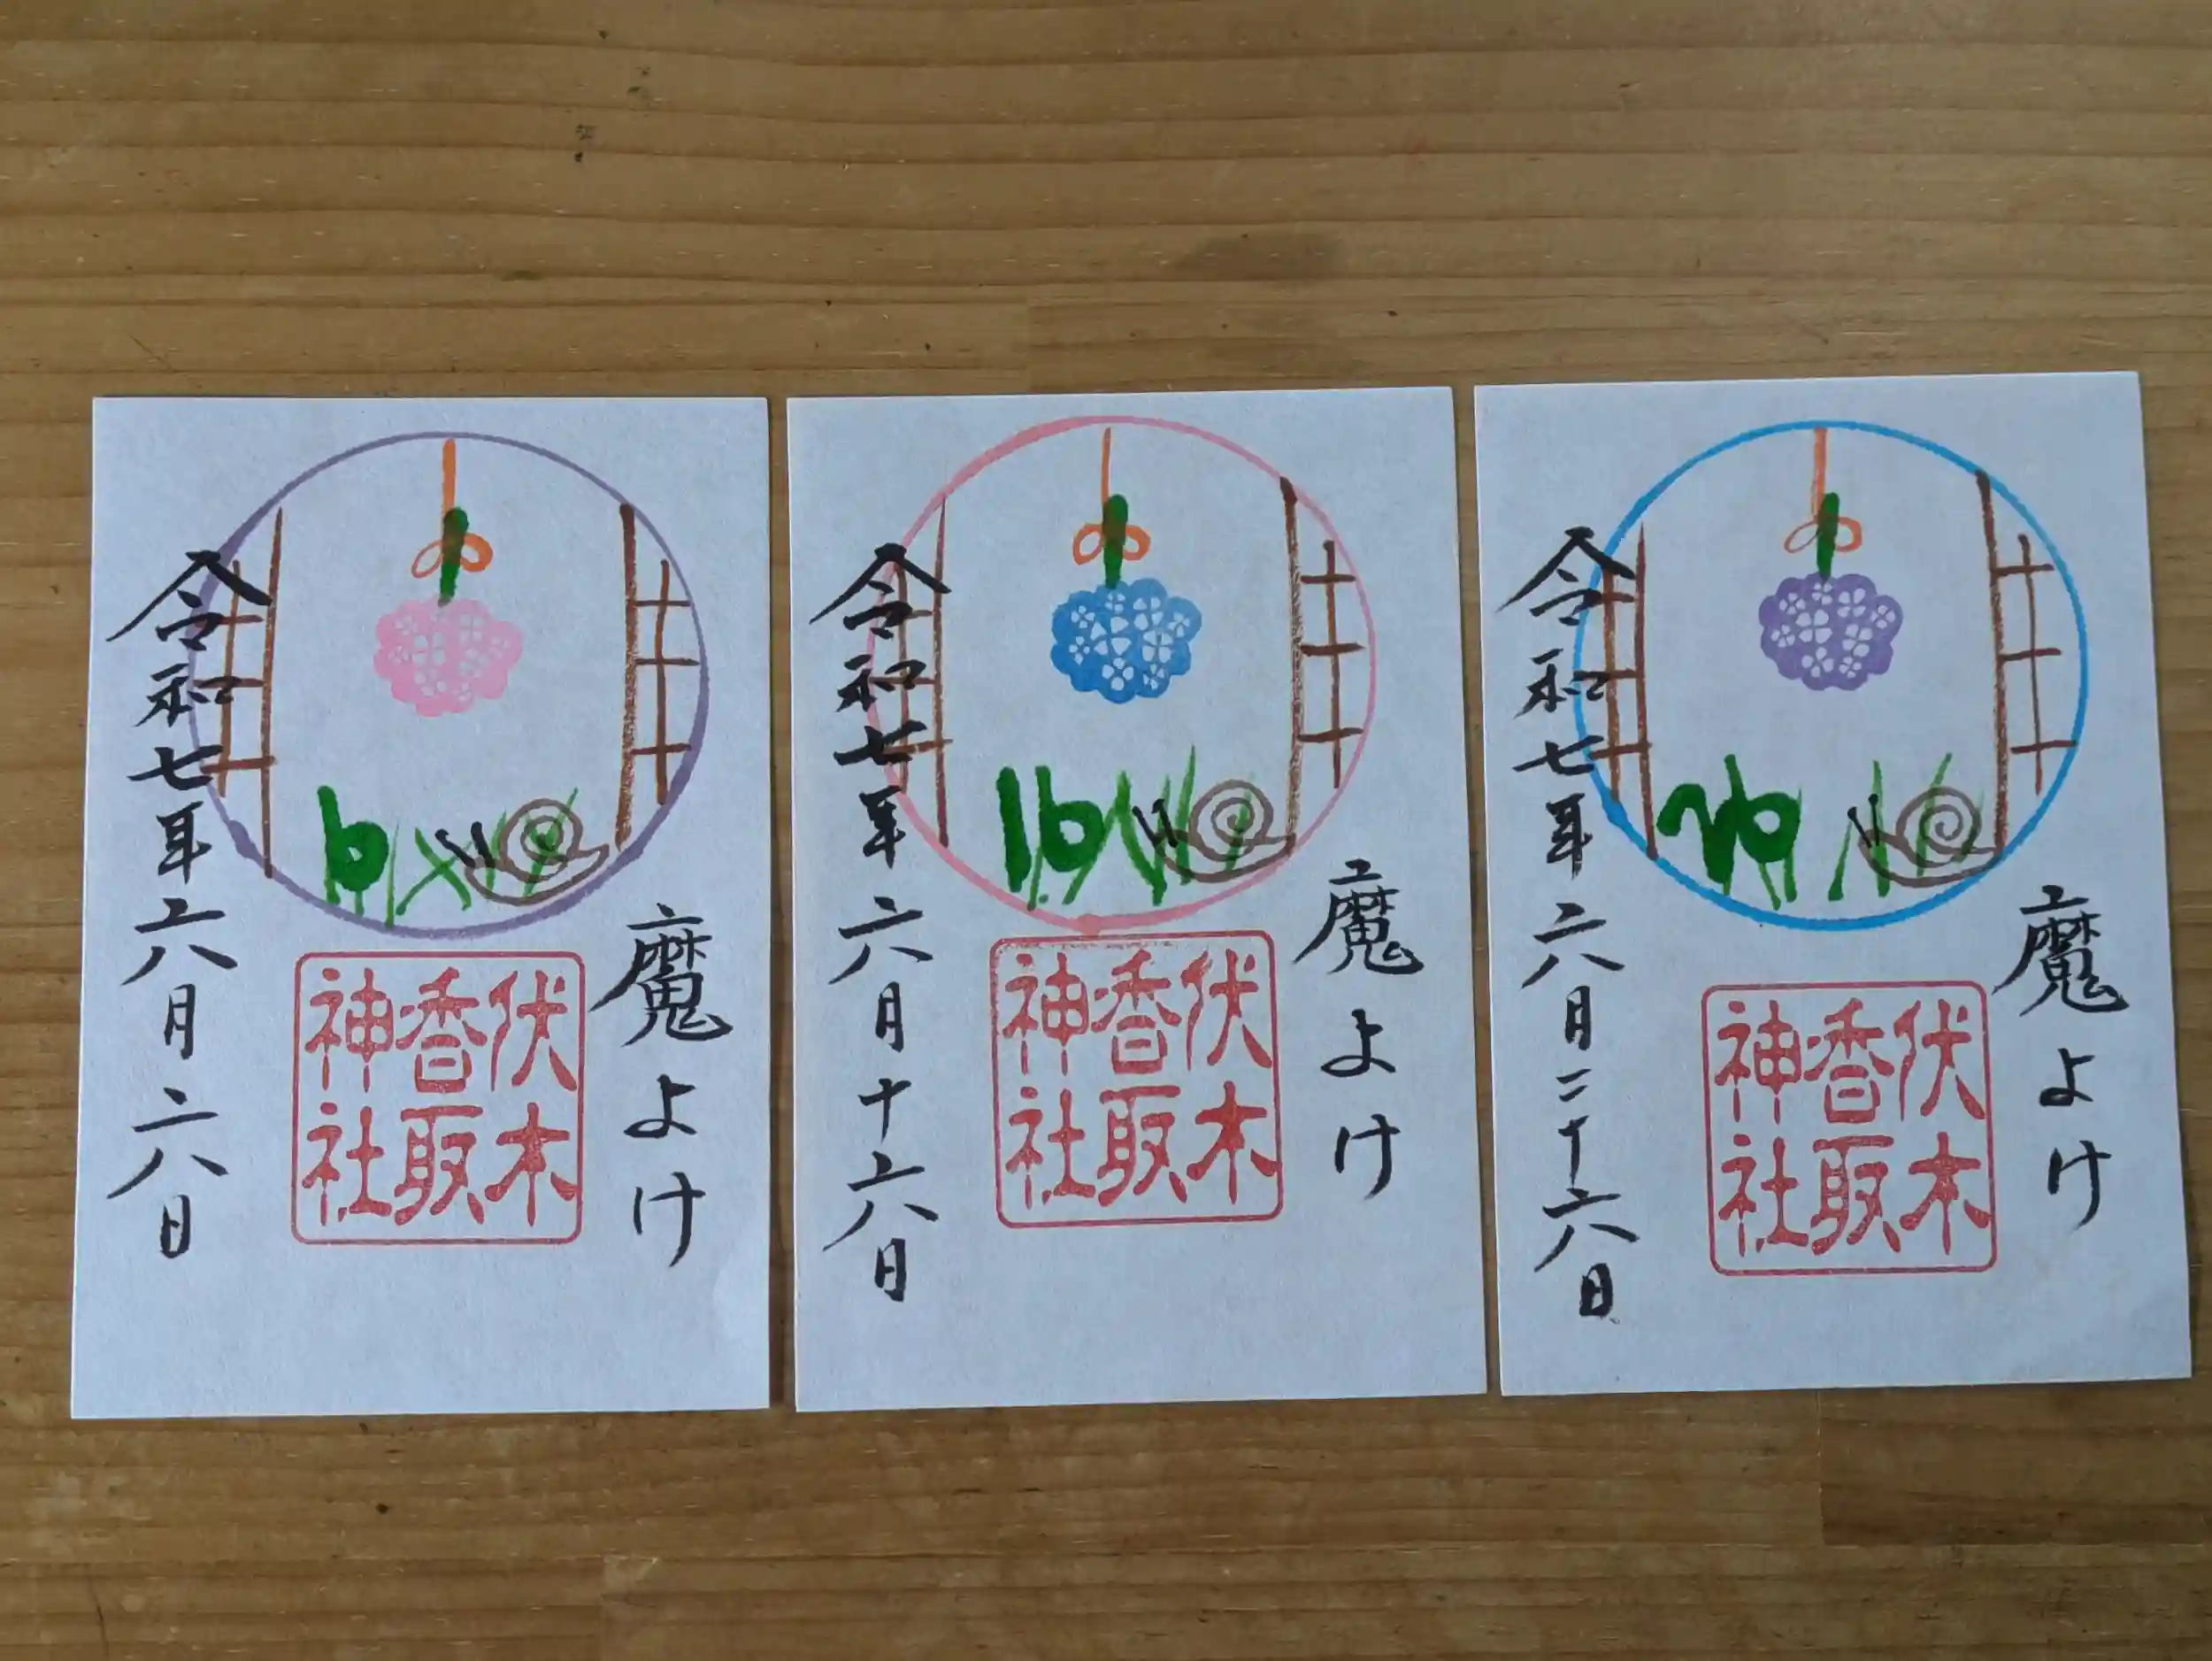 魔よけ
伏木
香取
神社
令和七年六月六日
6
魔よけ
伏木
香取
神社
令和七年六月十六日
16
魔よけ
伏木
香取
神社
令和七年六月二十六日
26